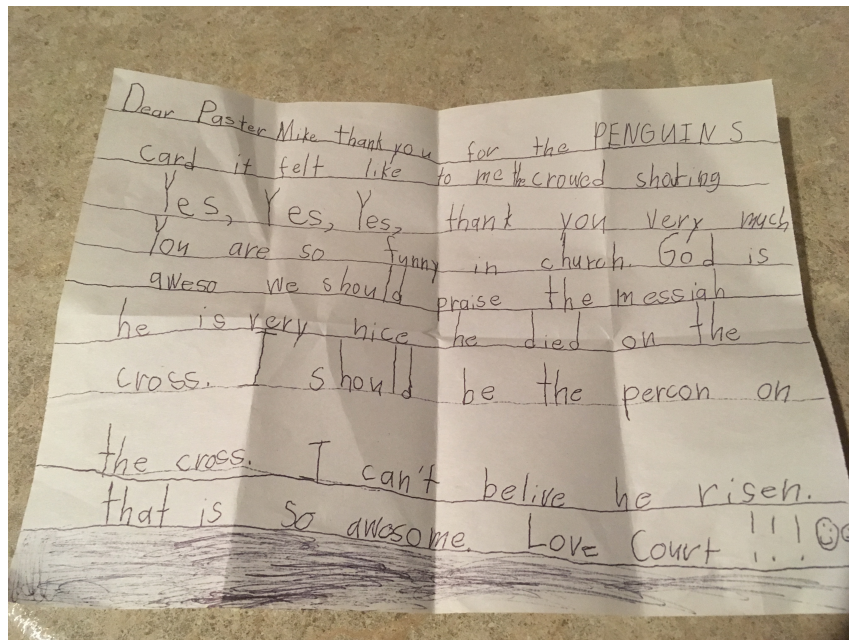 Dear Paster Mike thank you for the PENGUINS
card it felt like to me the crowed shoting
Yes, Yes, Yes, thank you very much
You are so funny in church. God is
aweso we should praise the messiah
he is very nice he died on the
cross. I should be the percon on
the cross. I can't belive he risen.
that is so awosome. Love Court !!!